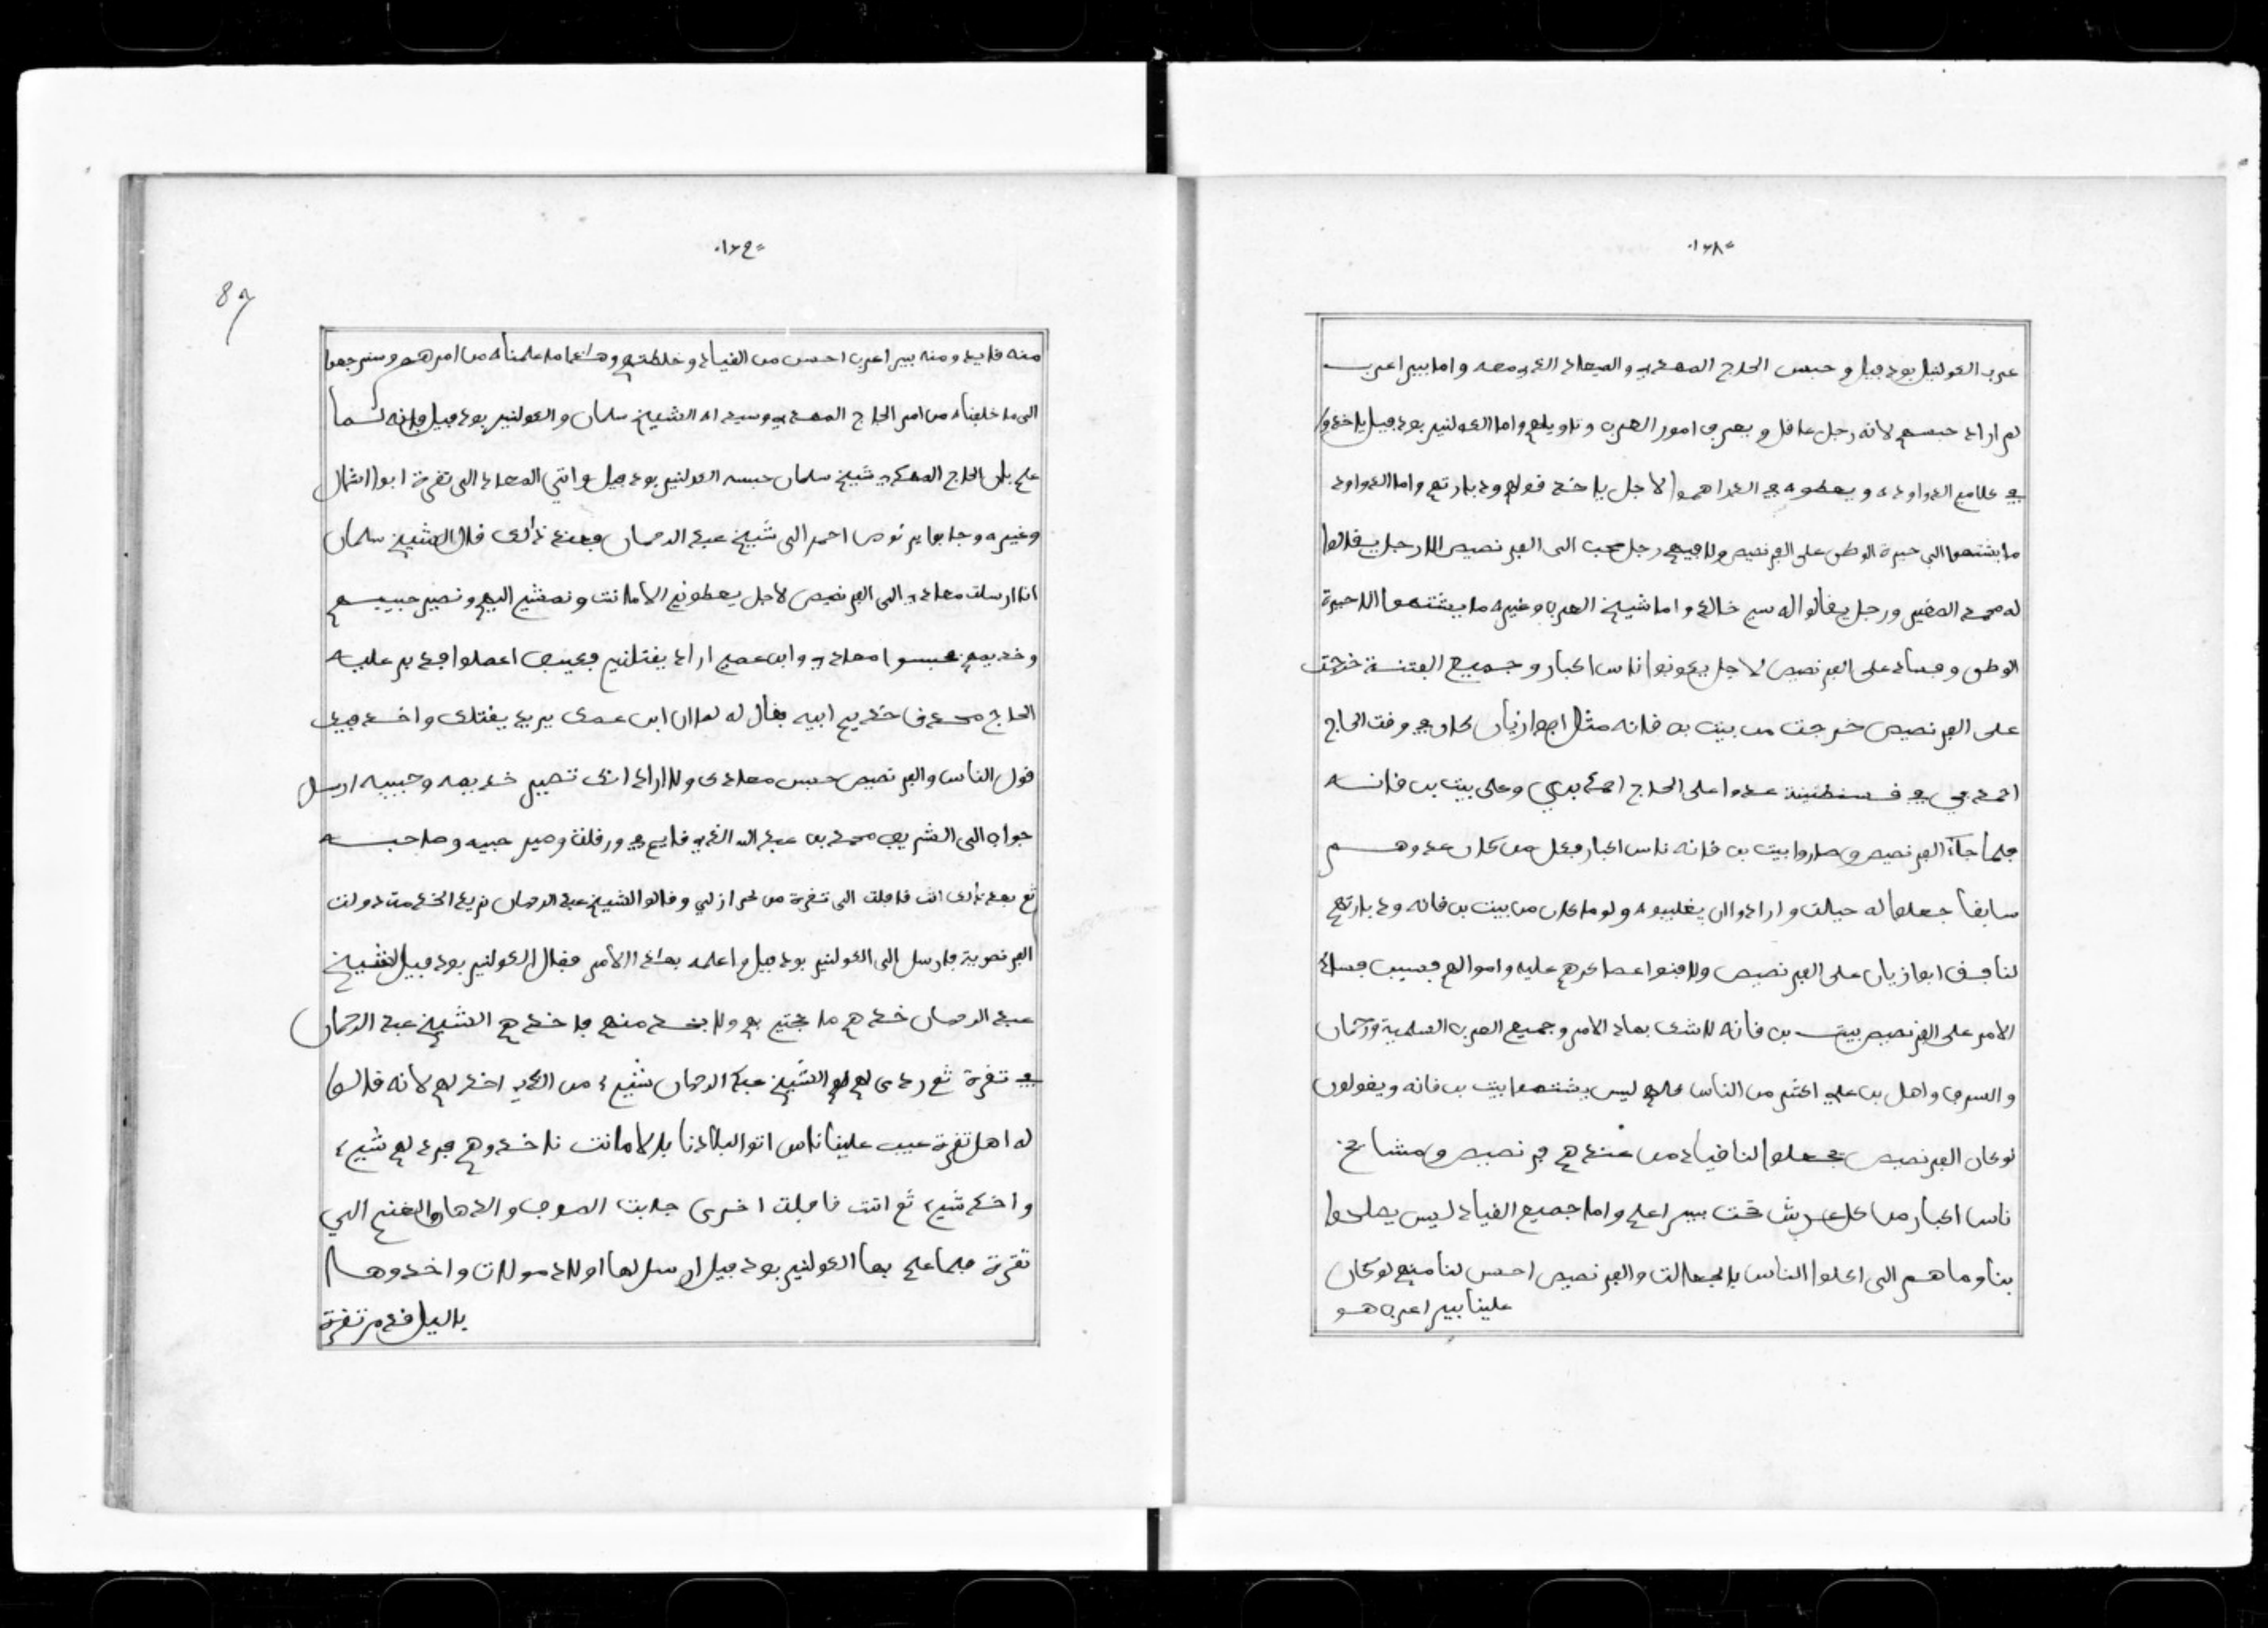 عرب الكولنيل بودفيل وحبس الحاج المهدي والصعاد الذي معه واما بيير اعرب
لم اراد حبسهم لانه رجل عاقل ويعرف امور العرب وتاويلهم واما الكولنير بودفيل ياخذ
في كلامع الدواودة ويعطوه في الدراهموا لاجل ياخذ قولهم ودبارتهم واما الدواودة
ما يشتهوا الى خيرة الوطن على الفرنصيص ولا فيهم رجل محب الى الفرنصيص الا رجل يقالوا
له محمد الصغير ورجل يقالوا له سي خالد واما شيخ العرب وغيره ما يشتهوا الا خيرة
الوطن وفساد على الفرنصيص لاجل يكونوا ناس اكبار وجميع الفتنة خرجت
على الفرنصيص خرجت من بيت بن قانه مثل ابوا زيان كان في وقت الحاج
احمد بي في قسنطنينة عدوا على الحاج احمد بي وعلى بيت بن قانه
فلما جآء الفرنصيص وصاروا بيت بن قانه ناس اكبار فعل من كان عدوهم
سابقا جعلوا له حيالت وارادوا ان يغلبوه ولو ما كان من بيت بن قانه ودبارتهم
لنافق ابوا زيان على الفرنصيص ولا فنوا عساكرهم عليه واموالهم فسبب فساد
الامر على الفرنصيص بيت بن قانه لا شك بهاذ الامر وجميع العرب السلمية ورحمان
والسرف واهل بن علي اكثير من الناس كلهم ليس يشتهوا بيت بن قانه ويقولون
لو كان الفرنصيص يجعلوا لنا قياد من عندهم فرنصيص ومشايخ
ناس اكبار من كل عرش تحت بيير اعلم واما جميع القياد ليس يصلحوا
بنا وما هم الى اكلوا الناس بالجعالت والفرنصيص احسن لنا منهم لو كان
علينا بيير اعرب هو
منه قايد ومنه بيير اعرب احسن من القياد وخلطتهم وهذا ما علمناه من امرهم وسنرجعوا
الى ما خلفناه من امر الحاج المهدي وسيد اه الشيخ سلمان والكولنير بودفيل فانه لما
علم بان الحاج المهدي شيخ سلمان حبسه الكولنير بودفيل واتي الصعاد الى تقرة ابوا اشمال
وغيره وجابوا برنوص احمر الى شيخ عبد الرحمان فعند ذالك قال الشيخ سلمان
انا ارسلت معادي الى الفرنصيص لاجل يعطوني الامانت ونمشي اليهم ونصير حبيبهم
وخديمهم حبسوا معادي وابن عمي اراد يقتلني فكيف اعملوا فدبر عليه
الحاج محمد خديم ابيه فقال له لو ان ابن عمك يريد يقتلك واخذ فيك
قول الناس والفرنصيص حبس معادك ولا اراد انك تصير خديمه وحبيبه ارسل
جواب الى الشريف محمد بن عبد الله الذي قايم في ورقلة وصير حبيبه وصاحبه
ثم بعد ذالك اتت قافلت الى تقرة من احراز لي وقالوا الشيخ عبد الرحمان نريد الخدمت دولت
الفرنصوية فارسل الى الكولنير بودفيل واعلمه بهذا الامر فقال الكولنير بودفيل لشيخ
عبد الرحمان خذهم ما نحتج بهم ولا نخد منهم فاخذهم الشيخ عبد الرحمان
في تقرة ثم ردى لهم الشيخ عبد الرحمان شيء من الذي اخذ لهم لانه قالوا
له اهل تقرة عيب علينا ناس اتوا البلادنا بالامانت ناخذوهم فرد لهم شيء
واخذ شيء ثم اتت قافلت اخرى جابت الصوف والدهان والغنم الى
تقرة فلما علم بها الكولنير بودفيل ارسل لها اولاد مولات واخذوها
باليل قد من تقرة